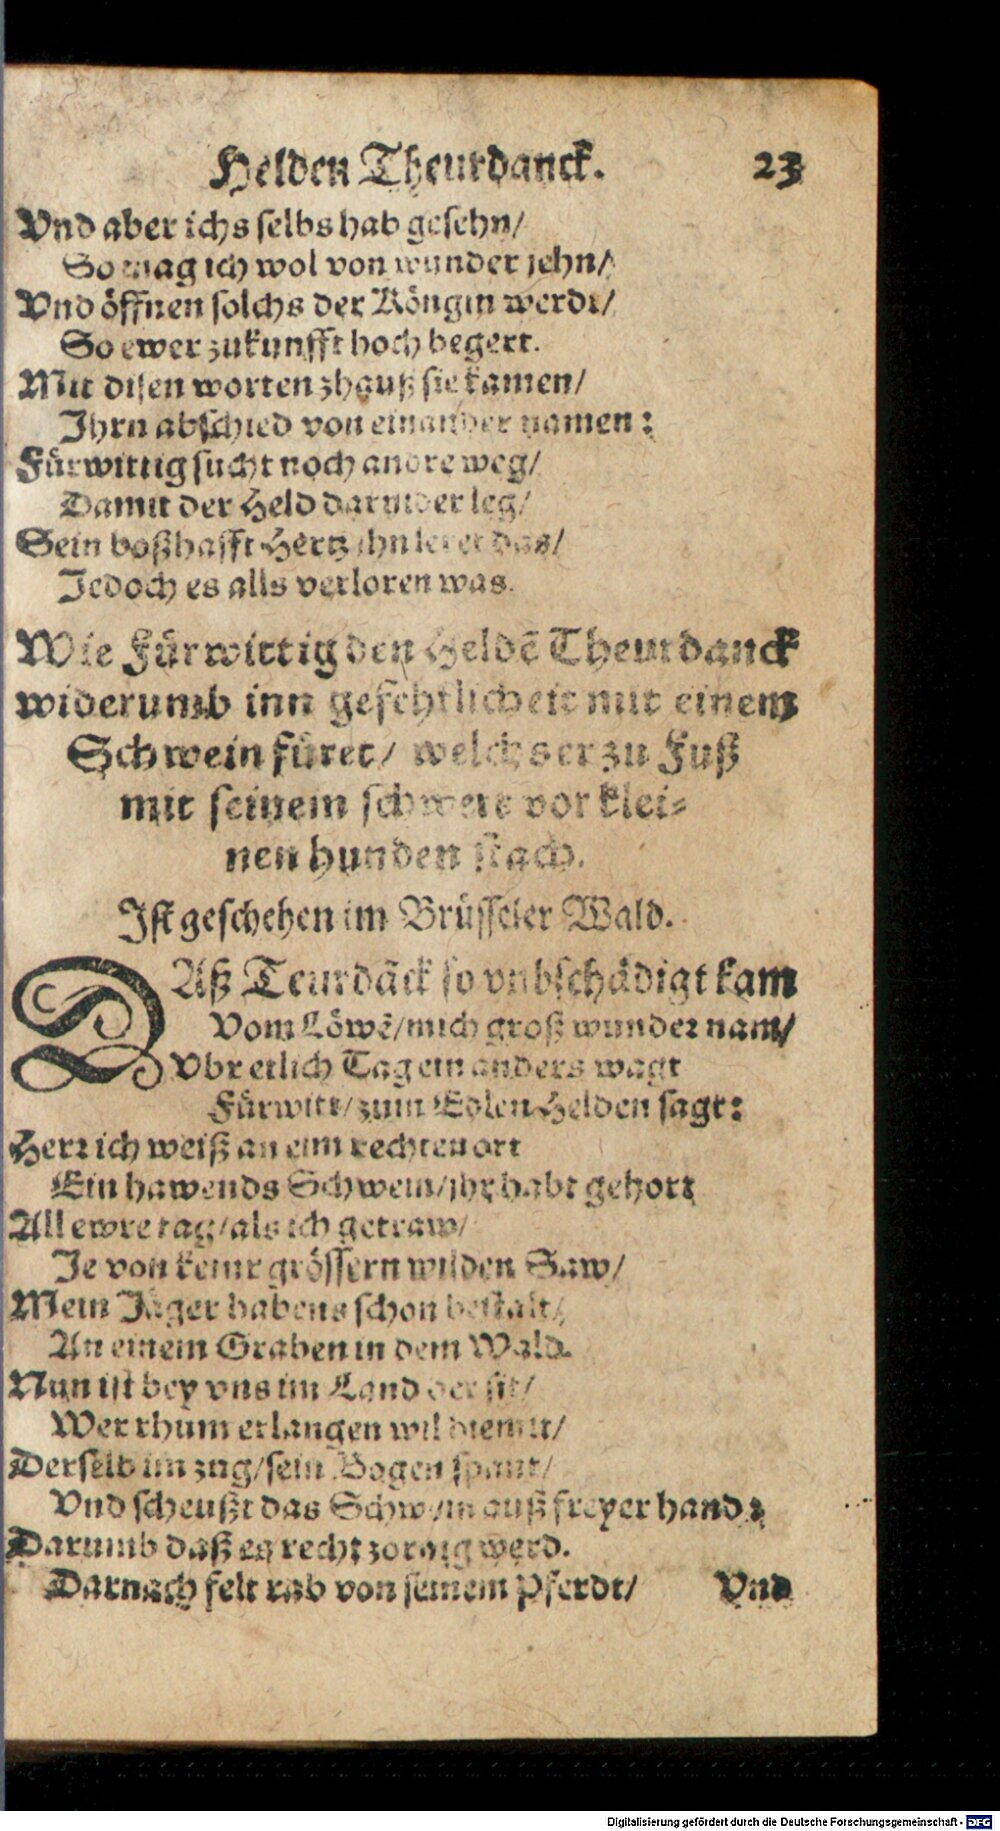 Helden Theurdanck. 23
Vnd aber ichs selbs hab gesehn/
So mag ich wol von wunder jehn/
Vnd öffnen solchs der Köngin werdt/
So ewer zukunfft hoch begert.
Mit disen worten zhauß sie kamen/
Ihrn abschied von einander namen:
Fürwittig sucht noch andre weg/
Damit der Held darnider leg/
Sein boßhafft Hertz ihn leret das/
Jedoch es alls verloren was.
Wie Fürwittig den Heldẽ Theurdanck
widerumb inn gefehrlicheit mit einem
Schwein füret/ welchs er zu Fuß
mit seinem schwert vor klei-
nen hunden stach.
Ist geschehen im Brüsseler Wald.
DAß Teurdãck so vnbschädigt kam
Vom Löwẽ/mich groß wunder nam/
Vbr etlich Tag ein anders wagt
Fürwitt/zum Edlen Helden sagt:
Herr ich weiß an eim rechten ort
Ein hawends Schwein/jhr habt gehort
All ewre tag/als ich getraw/
Je von keinr grössern wilden Saw/
Mein Jäger habens schon bestalt/
An einem Graben in dem Wald.
Nun ist bey vns im Land der sit/
Wer rhum erlangen wil hiemit/
Derselb im zug/sein Bogen spant/
Vnd scheußt das Schwein auß freyer hand:
Darumb daß es recht zornig werd.
Darnach felt rab von seinem Pferdt/ Vnd
Digitalisierung gefördert durch die Deutsche Forschungsgemeinschaft - DFG